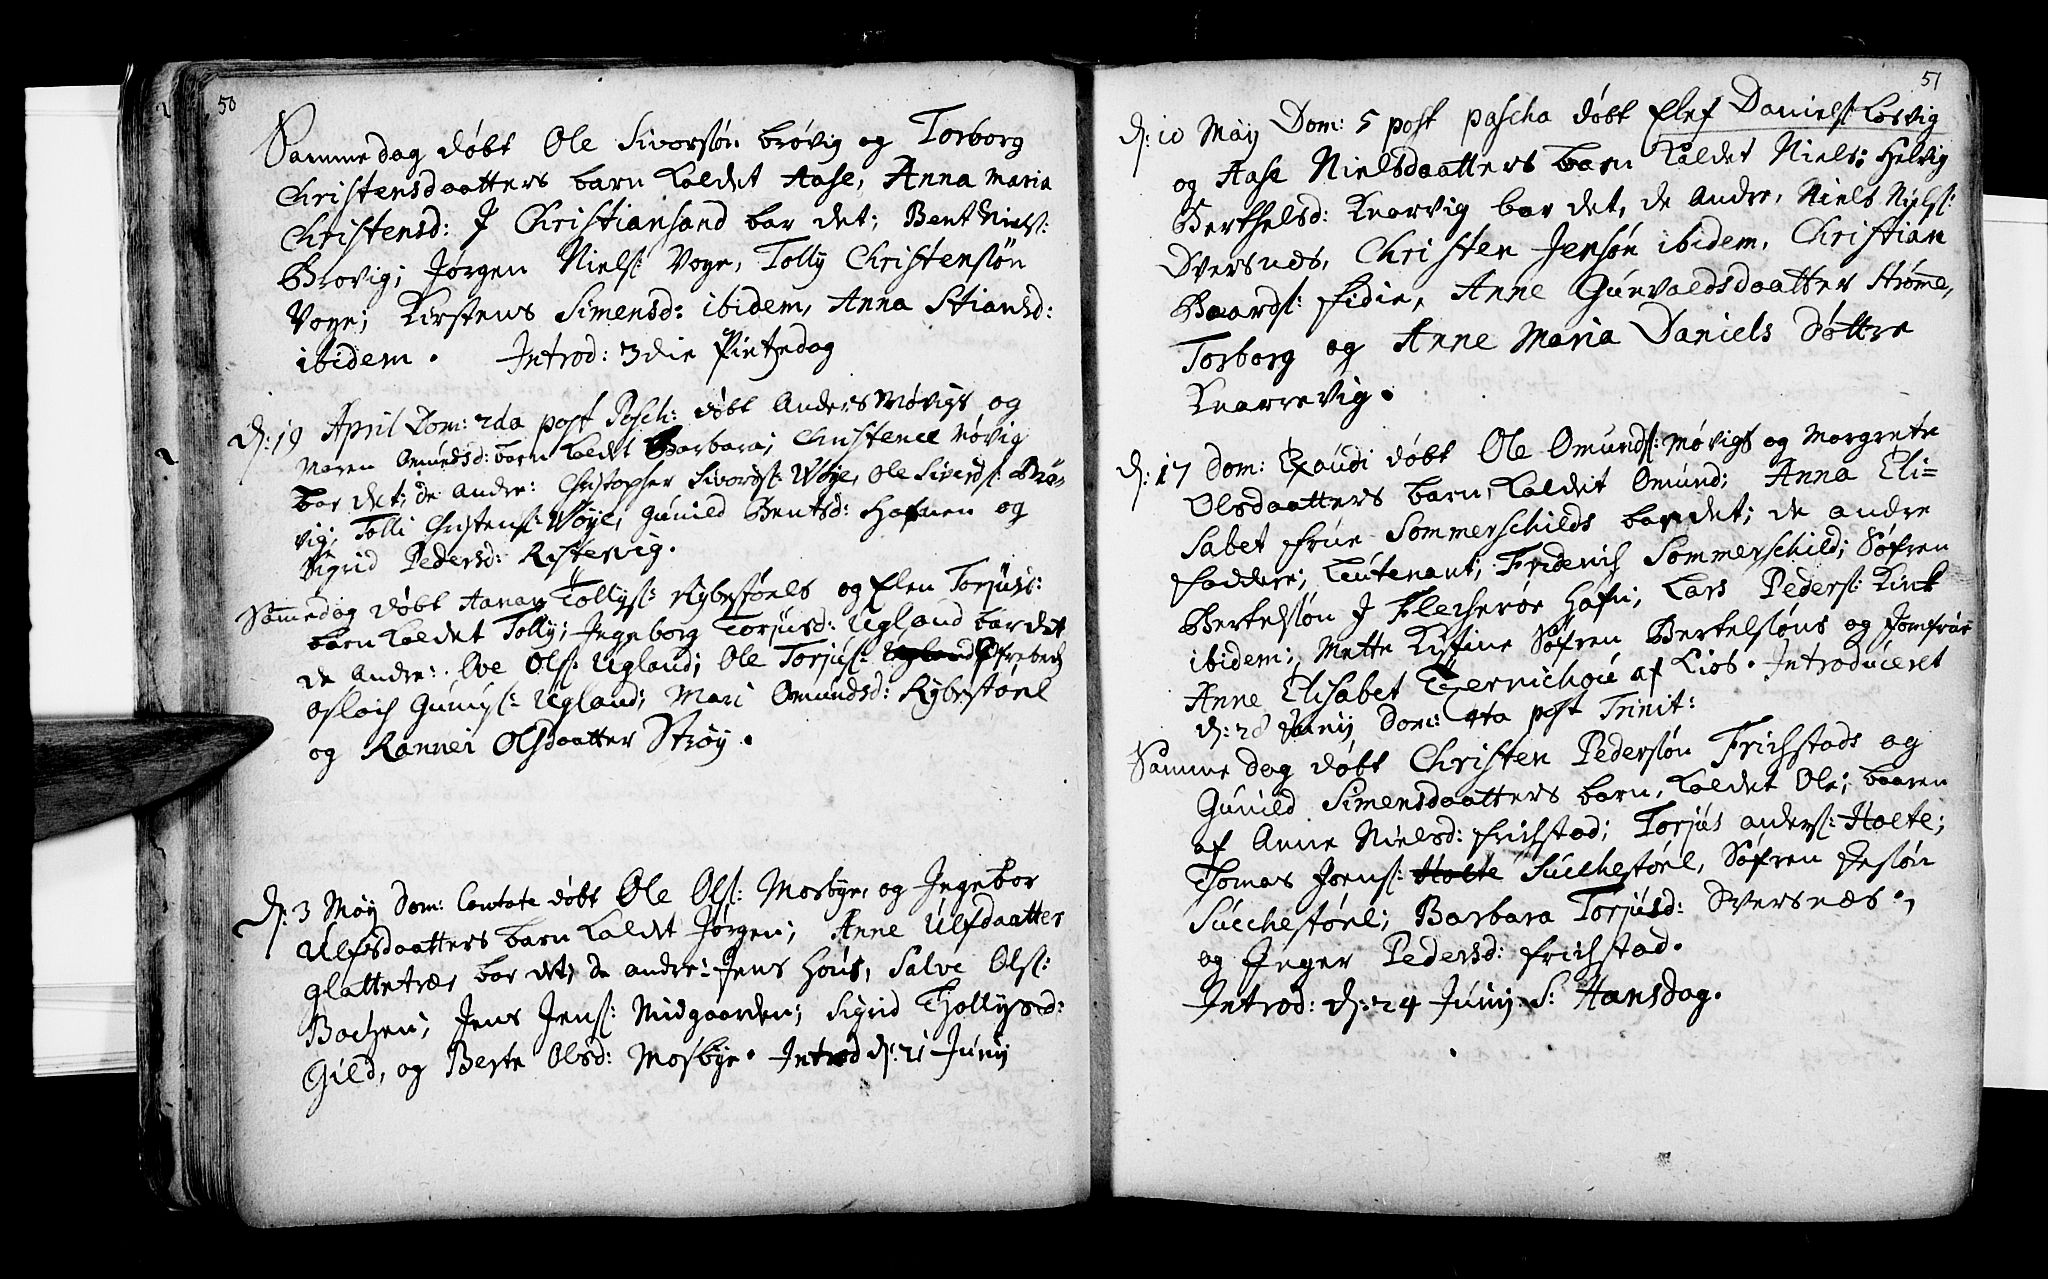 50
Samme dag døbt Ole Sivorsøn brøvig og Torborg
Christensdaatters barn kaldet Aase, Anna Maria
Christensd: J Christiansand bar det; Bent Niels:
Brovig; Jørgen Niels: Voge, Tolly Christensøn
Voge; Kirstens Simensd: ibidem, Anna Stiansd:
ibidem. Introd: 3die Pintzedag
d: 19 April Dom: 2da post Pasch: døbt Anders Møvigs og
Maren Omundsd: barn kaldt Barbara; Christence Møvig
bar det; de andre: Christopher Sivords: Vøye, Ole Siverds: Brø-
vig; Tolli Christens: Vøye, Gunild Bentsd: Hafnen og
Sigrid Pedersd: Ristevig.
Samme dag døbt Aanan Tollys: Rybestøels og Elen Torjus:
barn kaldet Tolly; Ingeborg Torjusd: Ugland bar det
de andre: Ove Ols: Ugland; Ole Torjus: Ugland
Asloch Gunys: Ugland; Mari Omundsd: Rybestøel
og Rannei Olsdaatter Strøy.
d: 3 Maij Dom: Cantate døbt Ole Ols: Mosbye, og Ingebor
Ulfsdaatters barn kaldet Jørgen; Anne Ulfsdaatter
Glattetræ, bar det; de andre: Jens Hous, Salve Ols:
Bachen; Jens Jens: Midgaarden; Sigrid Thollysd:
Gild, og Berte Olsd: Mosbye. Introd d: 21 Junij
51
d: 10 Maij Dom: 5 post pascha døbt Elef Daniels: Kosvig
og Aase Nielsdaatters barn kaldet Niels; Helvig
Berthelsd: Knarvig bar det, de andre, Niels Niels:
Dversnes, Christen Jensøn ibidem, Christian
Baards: Fidie, Anne Gunvaldsdaatter Strøme,
Torborg og Anne Maria Daniels Døttre
Knarrevig.
d: 17 Dom: Exaudi døbt Ole Omunds: Møvigs og Margrete
Olsdaatters barn, kaldet Omund; Anna Eli-
sabet Frue Sommerschilds bar det; de andre
Faddere; Leutenant; Friderich Sommerschild; Søfren
Bertelsøn J Flecherøe Hafn; Lars Peders: Kink
ibidem; Mette Kistine Søfren Bertelsøns og Jomfrue
Anne Elisabet af Kios. Introduceret
d: 28 Junij Dom: 4ta post Trinit:
Samme dag døbt Christen Pedersøn Frichstads og
Gunild Simensdaatters barn, kaldet Ole; baaren
af Anne Nielsd: Frichstad; Torjus Anders: Holte;
Thomas Jøens: Holte Suchestøel, Søfren Jesøn
Suchestøel; Barbara Torjusd: Dversnes,
og Inger Pedersd: Frichstad.
Introd: d: 24 Junij S: Hansdag.